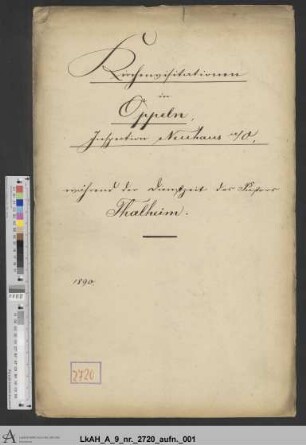 Kirchenvisitationen
in
Oppeln,
Inspection Neuhaus a/O.
während der Dienstzeit des Pastors
Thalheim.
1890.
2720
LkAH_A_9_nr._2720_aufn._001